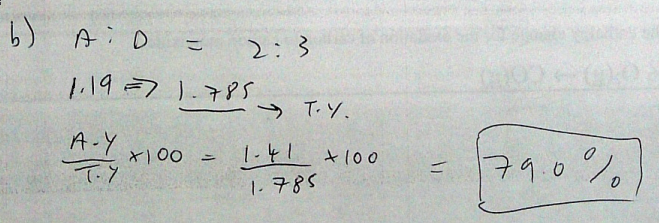 b) A : D = 2:3
1.19 => 1.785 → T.Y.
A.Y/T.Y × 100 = 1.41/1.785 × 100 = 79.0%